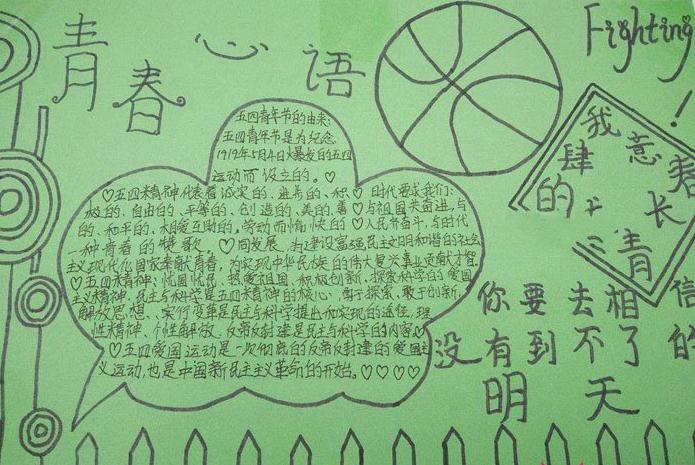 青春心语
Fighting!
五四青年节的由来:
五四青年节是为纪念
1919年5月4日爆发的五四
运动而设立的。
♡五四精神代表着诚实的、进步的、积♡时代要求我们:
极的、自由的、平等的、创造的、美的、善♡与祖国共奋进,与
的、和平的、相爱互助的。劳动而愉快的♡人民齐奋斗,与时代
一种青春的赞歌。♡同发展,为建设富强民主文明和谐的社会
主义现代化国家奉献青春,为实现中华民族的伟大复兴事业贡献才智
♡五四精神:忧国忧民、热爱祖国、积极创新、探索科学的爱国
主义精神,民主与科学是五四精神的核心,勇于探索、敢于创新、
解放思想、实行变革是民主与科学提出和实现的途径,理
性精神、个性解放、反帝反封建是民主与科学的内容♡
♡五四爱国运动是一次彻底的反帝反封建的爱国主
义运动,也是中国新民主主义革命的开始。♡♡♡♡
我
肆意
的 长
青
你要去相信
没有到不了的
明天